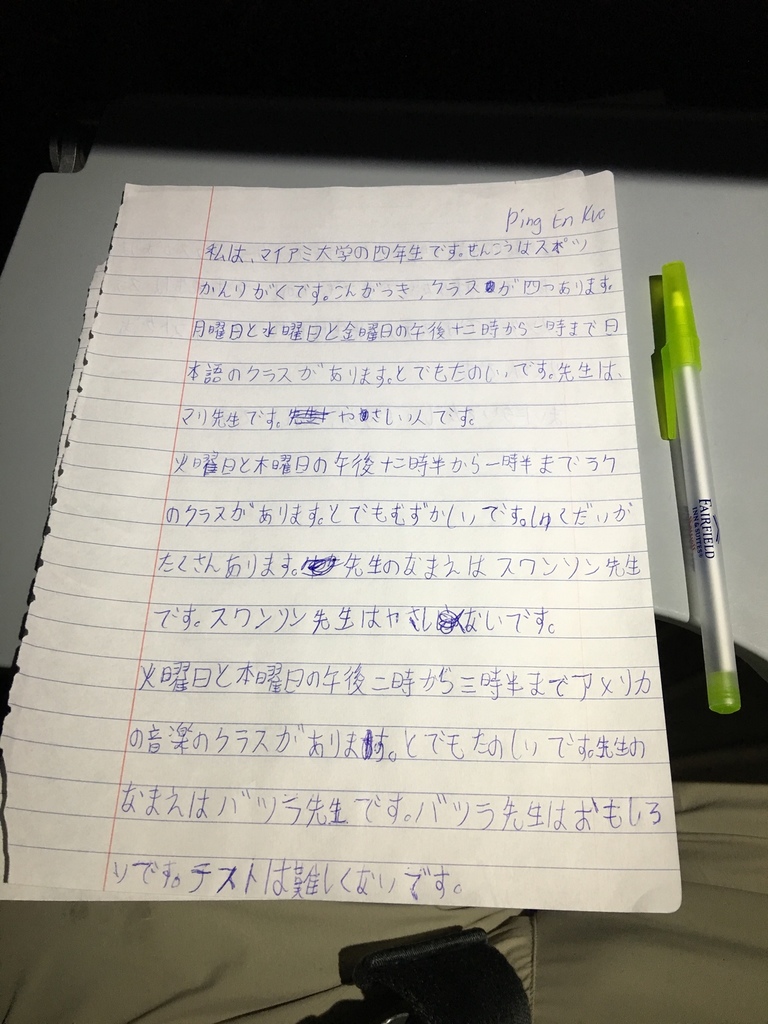 Ping En Kuo
私は、マイアミ大学の四年生です。せんこうはスポーツ
かんりがくです。こんがっき、クラスが四つあります。
月曜日と水曜日と金曜日の午後十二時から一時まで日
本語のクラスがあります。とでもたのしいです。先生は、
マリ先生です。やさしい人です。
火曜日と木曜日の午後十二時半から一時半までラク
のクラスがあります。とでもむずかしいです。しゅくだいが
たくさんあります。先生のなまえはスワンソン先生
です。スワンソン先生はやさしないです。
火曜日と本曜日の午後二時から三時半までアメリカ
の音楽のクラスがあります。とでもたのしいです。先生の
なまえはバツラ先生です。バツラ先生はおもしろ
いです。テストは難しくないです。
FAIRFIELD
INN & SUITES